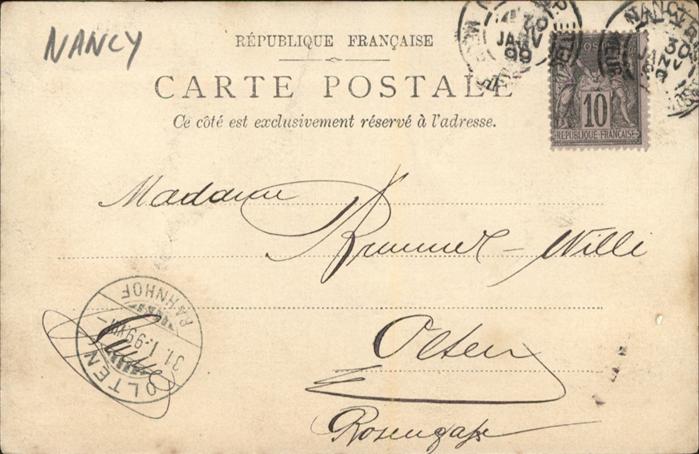 NANCY
RÉPUBLIQUE FRANÇAISE
CARTE POSTALE
Ce côté est exclusivement réservé à l'adresse.
NANCY
30
JANV
99
NANCY
30
JANV
10
REPUBLIQUE FRANÇAISE
Madame
Brunner-Willi
Olten
Rosengasse
OLTEN
31.1.99.VII-
BAHNHOF